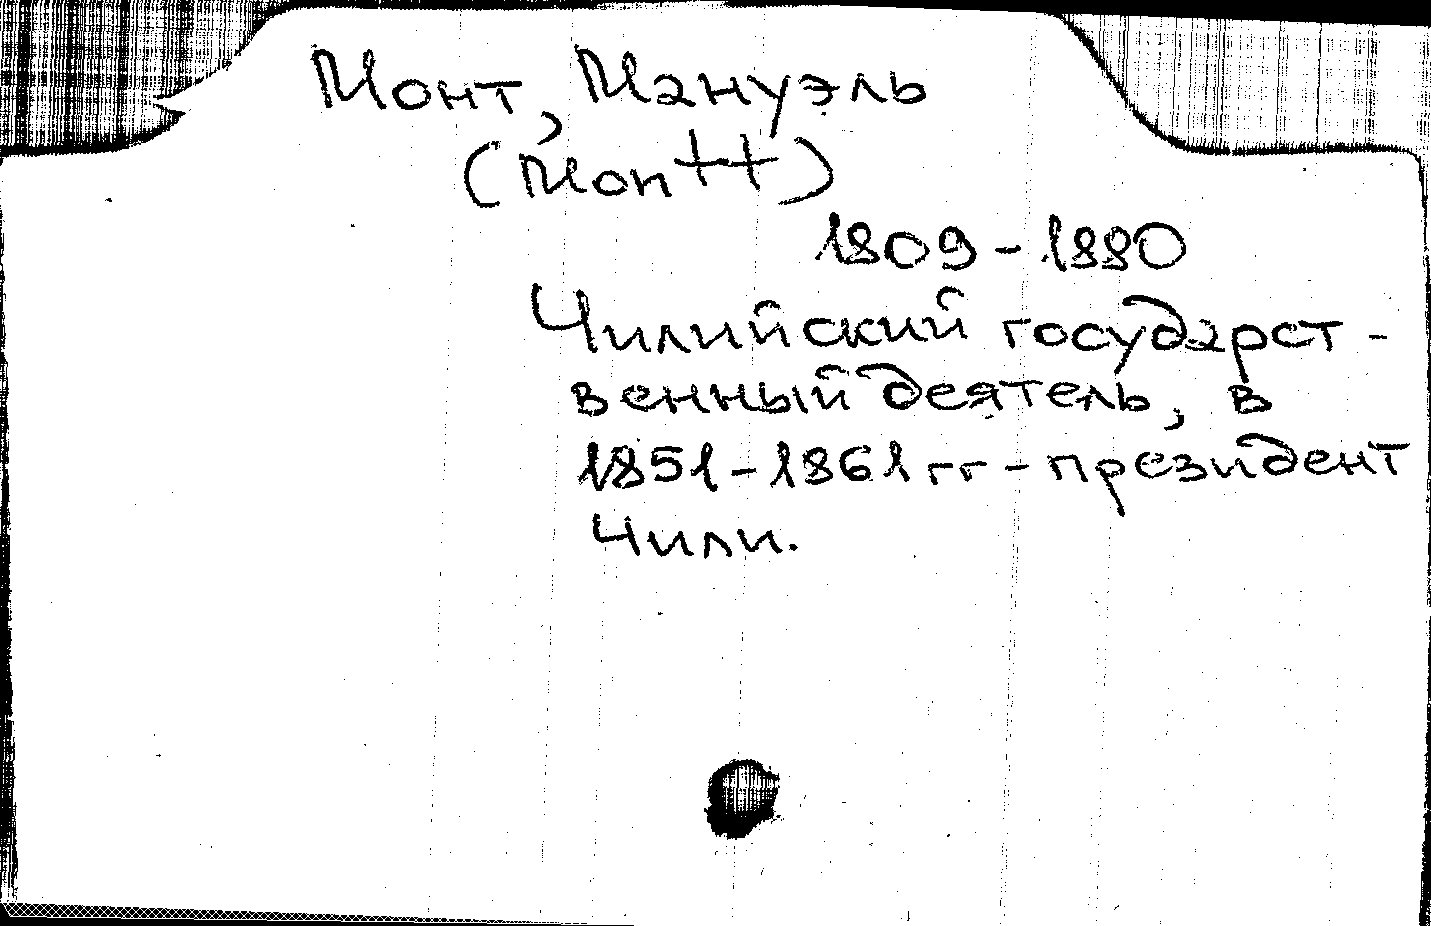 Монт, Мануэль
(Montt)
1809-1880
Чилийский государст-
венный деятель, в
1851-1861 гг - президент
Чили.